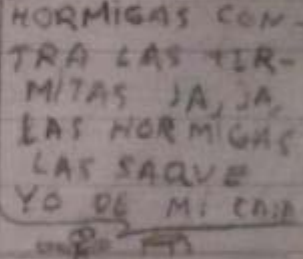 HORMIGAS CON-
TRA LAS TER-
MITAS JA, JA,
LAS HORMIGAS
LAS SAQUE
YO DE MI CAJA